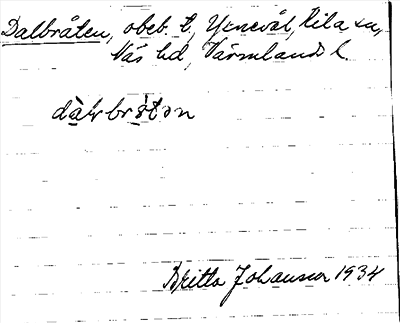 Dalbråten, obeb. t. Yttnevål, Kila sn,
Näs hd, Värmlands l.
dàlbråtən
Britta Johansson 1934